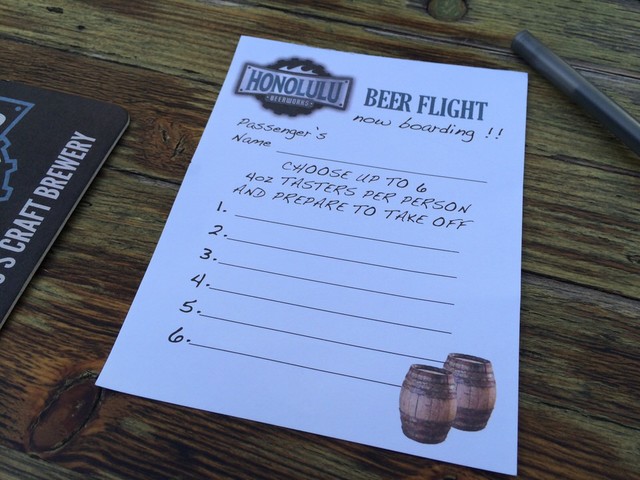 HONOLULU
BEERWORKS
BEER FLIGHT
now boarding !!
Passenger's
Name
CHOOSE UP TO 6
4oz TASTERS PER PERSON
AND PREPARE TO TAKE OFF
1.
2.
3.
4.
5.
6.
CRAFT BREWERY